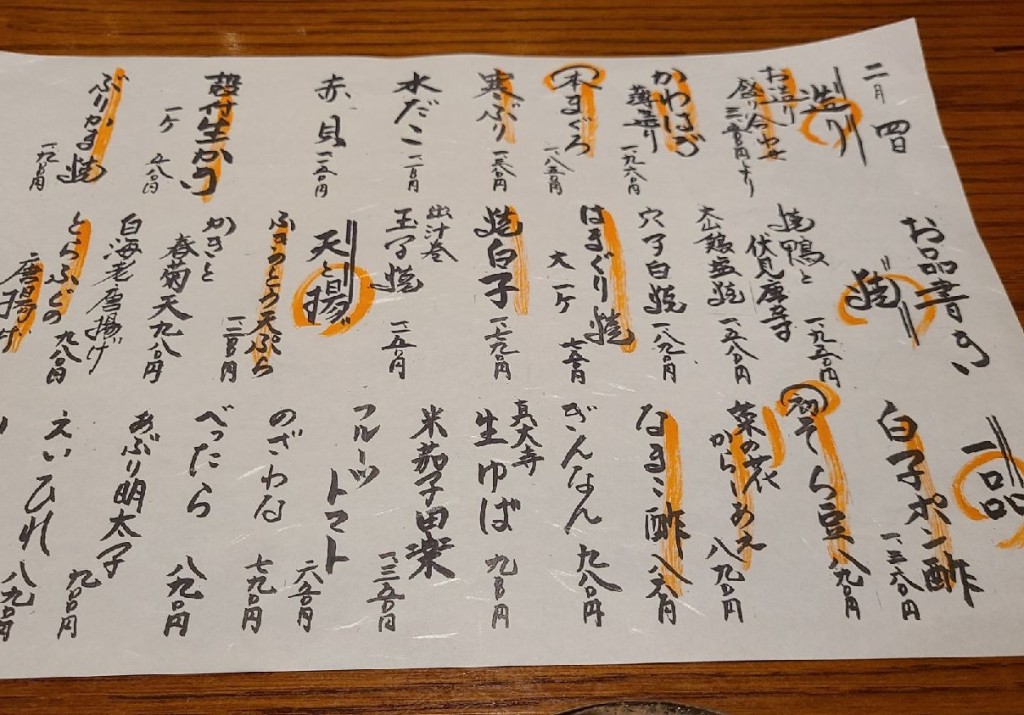 二月 四日
お品書き
造り
お造り
盛り合わせ
かわはぎ
薄造り
一、九六〇円
本まぐろ
一、八五〇円
寒ぶり
水だこ
赤貝
殻付生かき
一ケ
ぶりかま焼
焼
焼鴨と
伏見唐辛
一、九五〇円
大山鶏塩焼
一、五八〇円
穴子白焼
一、八九〇円
はまぐり焼
大 一ケ
七五〇円
焼白子
出汁巻
玉子焼
天と揚げ
ふきのとう天ぷら
かきと
春菊天 九八〇円
白海老唐揚げ
とらふぐの
唐揚げ
九八〇円
一品
白子ポン酢
一、三六〇円
初そら豆
八九〇円
菜の花
からしあえ
八九〇円
なまこ酢
ぎんなん
九八〇円
真大寺
生ゆば
九五〇円
米茄子田楽
一、三五〇円
フルーツ
トマト
六五〇円
のざわな
七九〇円
べったら
八九〇円
あぶり明太子
えいひれ
八九〇円